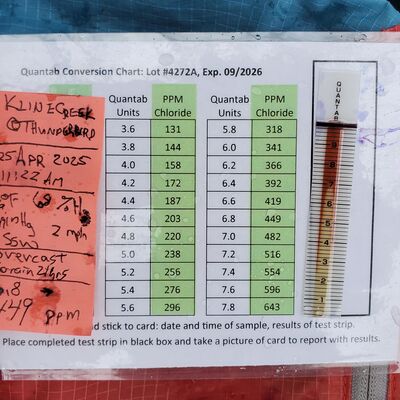 Quantab Conversion Chart: Lot #4272A, Exp. 09/2026
KLINE CREEK
@ THUNDERBIRD
25 APR 2025
11:22 AM
69 %H
2 mph
SSW
overcast
449 PPM
Quantab Units PPM Chloride Quantab Units PPM Chloride
3.6 131 5.8 318
3.8 144 6.0 341
4.0 158 6.2 366
4.2 172 6.4 392
4.4 187 6.6 419
4.6 203 6.8 449
4.8 220 7.0 482
5.0 238 7.2 516
5.2 256 7.4 554
5.4 276 7.6 596
5.6 296 7.8 643
QUANTAB
9
8
7
6
5
4
3
2
1
d stick to card: date and time of sample, results of test strip.
Place completed test strip in black box and take a picture of card to report with results.